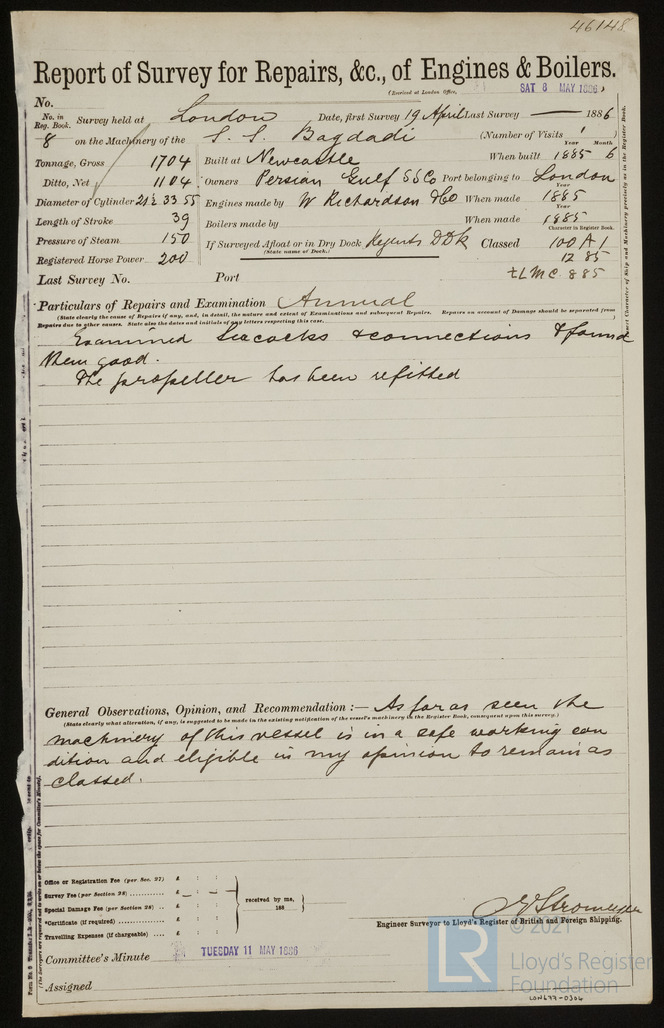 46148
Report of Survey for Repairs, &c., of Engines & Boilers.
(Received at London Office, SAT 8 MAY 1886)
No.
No. in Reg. Book. Survey held at London Date, first Survey 19 April Last Survey — 1886
8 on the Machinery of the S. S. Bagdadi (Number of Visits 1 )
Year Month
Tonnage, Gross 1704 Built at Newcastle When built 1885 6
Ditto, Net 1104 Owners Persian Gulf SS Co Port belonging to London
Year
Diameter of Cylinder 21½ 33 55 Engines made by W Richardson & Co When made 1885
Year
Length of Stroke 39 Boilers made by When made 1885
Character in Register Book.
Pressure of Steam 150 If Surveyed Afloat or in Dry Dock Regents D Dk Classed 100 A 1
(State name of Dock.)
Registered Horse Power 200 12 85
Last Survey No. Port LMC 8 85
Particulars of Repairs and Examination Annual
(State clearly the cause of Repairs if any, and, in detail, the nature and extent of Examinations and subsequent Repairs. Repairs on account of Damage should be separated from
Repairs due to other causes. State also the dates and initials of any letters respecting this case.
Examined Seacocks & connections & found
them good.
The propeller has been refitted
General Observations, Opinion, and Recommendation :— As far as seen the
(State clearly what alteration, if any, is suggested to be made in the existing notification of the vessel's machinery in the Register Book, consequent upon this survey.)
machinery of this vessel is in a safe working con
dition and eligible in my opinion to remain as
classed.
Office or Registration Fee (per Sec. 27) £ : :
Survey Fee (per Section 28) £ — : — : —
Special Damage Fee (per Section 28) £ : :
received by me,
188
*Certificate (if required) £ : :
Travelling Expenses (if chargeable) £ : :
Engineer Surveyor to Lloyd's Register of British and Foreign Shipping.
Committee's Minute TUESDAY 11 MAY 1886
Assigned
LR
© 2021
Lloyd's Register
Foundation
LON677-0306